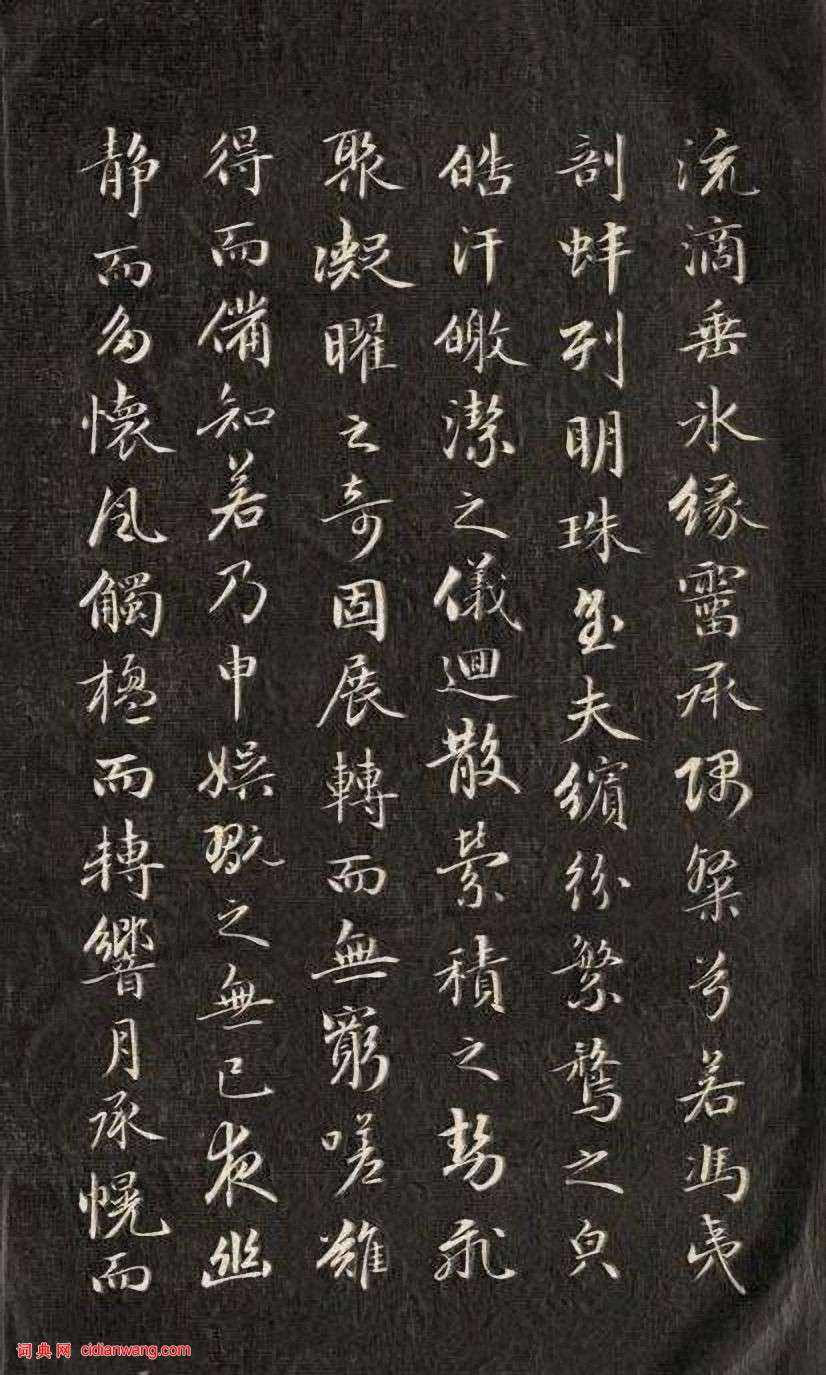 流滴垂氷緣霤承隅粲兮若馮夷
剖蚌列明珠至夫繽紛繁騖之皃
皓汗皦潔之儀迴散縈積之勢飛
聚凝曜之奇固展轉而無窮嗟難
得而備知若乃申娛翫之無已夜幽
靜而多懷風觸楹而轉響月承幌而
词典网 cidianwang.com